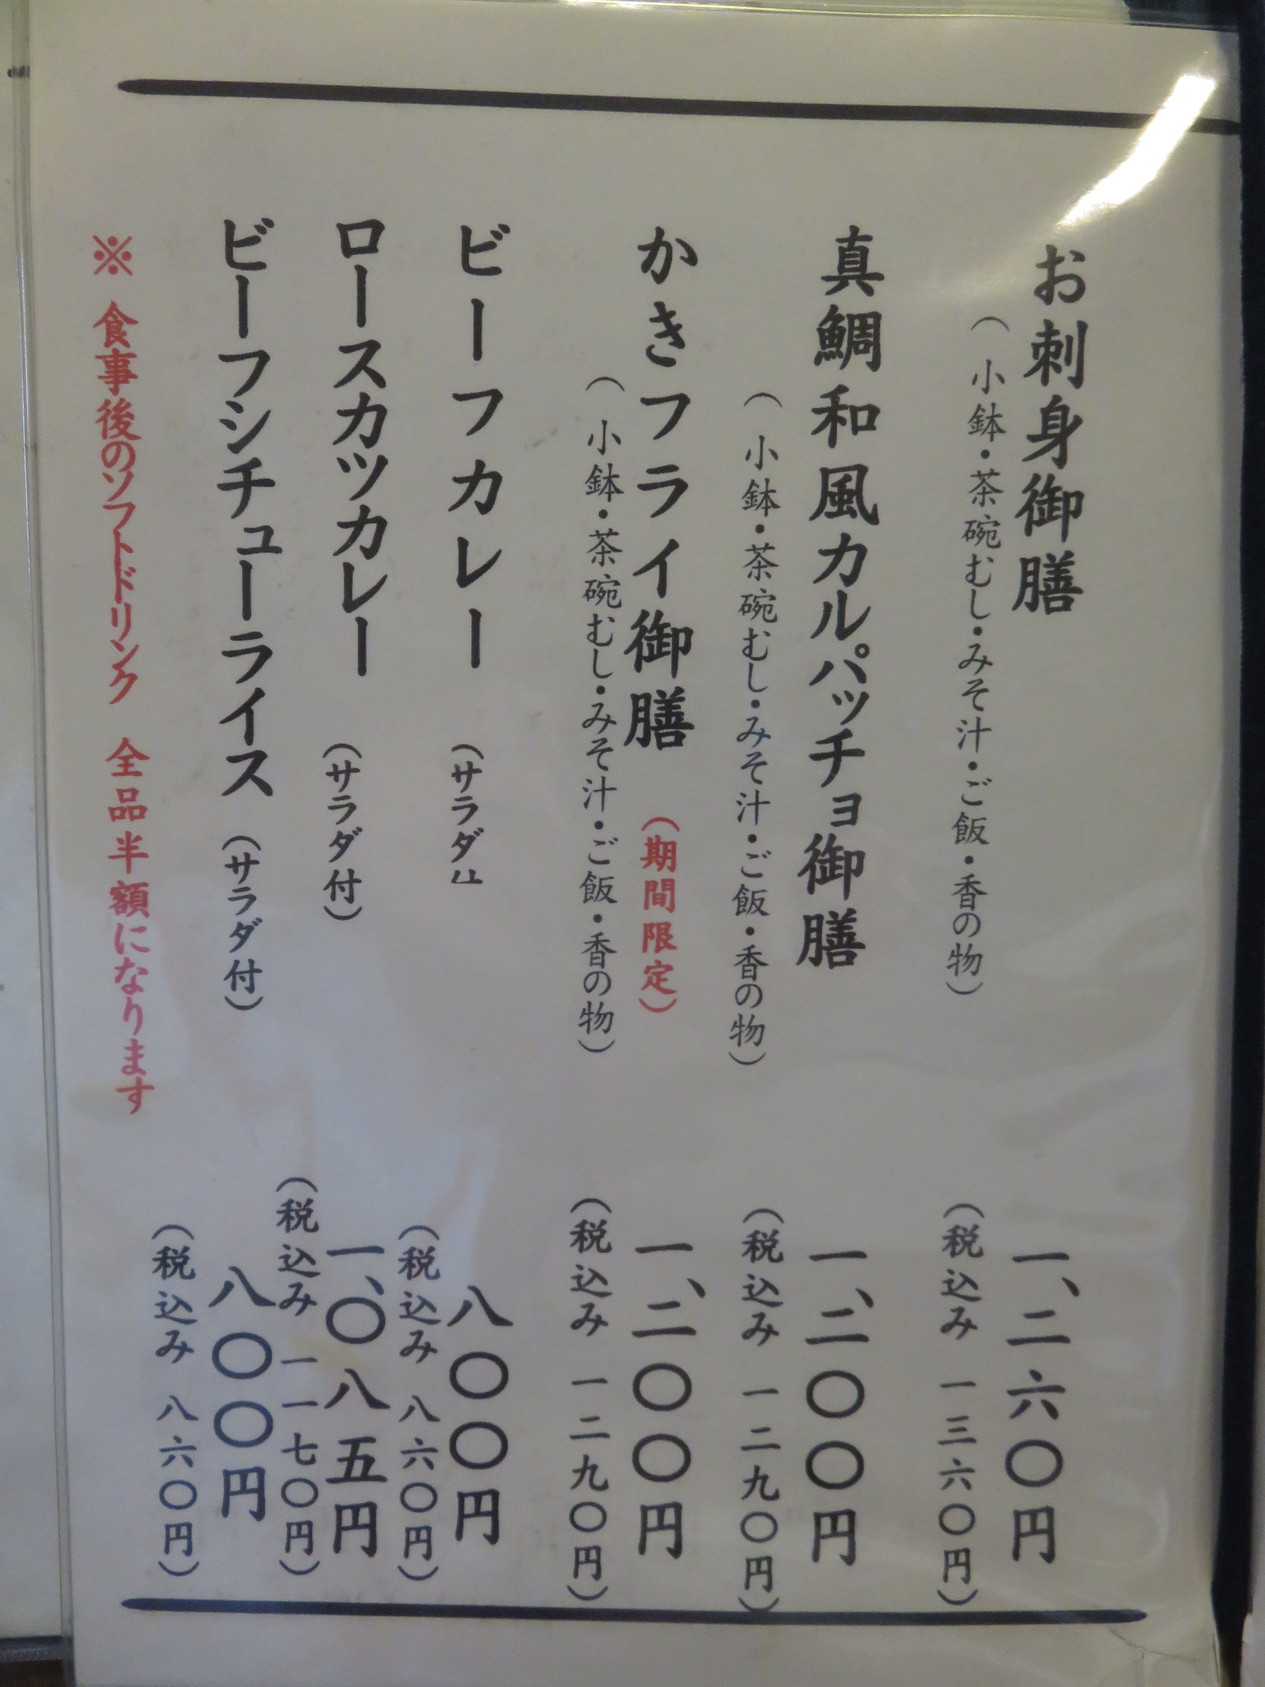 お刺身御膳
(小鉢・茶碗むし・みそ汁・ご飯・香の物)
一、二六〇円
(税込み 一三六〇円)
真鯛和風カルパッチョ御膳
(小鉢・茶碗むし・みそ汁・ご飯・香の物)
一、二〇〇円
(税込み 一二九〇円)
かきフライ御膳 (期間限定)
(小鉢・茶碗むし・みそ汁・ご飯・香の物)
一、二〇〇円
(税込み 一二九〇円)
ビーフカレー (サラダ
八〇〇円
(税込み 八六〇円)
ロースカツカレー (サラダ付)
一、〇八五円
(税込み 一一七〇円)
ビーフシチューライス (サラダ付)
八〇〇円
(税込み 八六〇円)
※ 食事後のソフトドリンク 全品半額になります